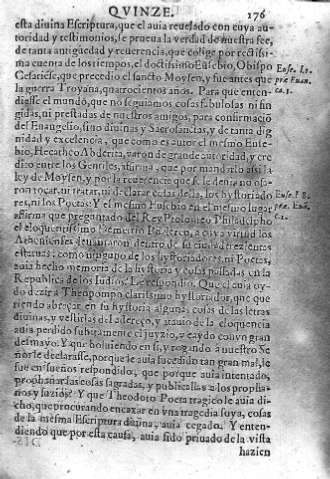 QVINZE. 176
esta diuina Escriptura, que el auia reuelado con cuya au-
toridad y testimonios, se prueua la verdad de nuestra fee,
de tanta antigüedad y reuerencia, que colige por rectissi-
ma cuenta de los tiempos, el doctissimo Eusebio, Obispo
Cesariêse, que precedio el sancto Moysen, y fue antes que
la guerra Troyana, quatrocientos años. Para que enten-
diesse el mundo, que no seguimos cosas fabulosas ni fin
gidas, ni prestadas de nuestros amigos, para confirmaciō
del Euangelio, sino diuinas y Sacrosanctas, y de tanta dig
nidad y excelencia, que como es autor el mesmo Euse-
bio, Hecatheo Abderita, varon de grande autoridad, y cre
dito entre los Gentiles, afirma, que por mandarlo assi la
ley de Moysen, y por la reuerencia que se le deuia no osa-
ron tocar, ni tratar, ni declarar cosas della, los hystoriado
res, ni los Poetas: Y el mesmo Eusebio en el mesmo lugar,
afirma que preguntado del Rey Ptolomeo Philadelpho
el eloquentissimo Demetrio Phalereo, a cuya virtud los
Athenienses leuantaron dentro de su ciudad trezientas
estatuas: como ninguno de los hystoriadores, ni Poetas,
auia hecho memoria de la hystoria y cosas passadas en la
Republica de los Iudios. Le respondio. Que el auia oy-
do dezir a Theopompo clarissimo hystoriador, que que
riendo abraçar en su hystoria algunas cosas de las letras
diuinas, y vestirlas del adereço, y atauio de la eloquencia
auia perdido subitamente el juyzio, y caydo con vn gran
desmayo. Y que boluiendo en si, y rogando a nuestro Se
ñor le declarasse, porque le auia sucedido tan gran mal, le
fue en sueños respondido, que porque auia intentado,
prophanar las cosas sagradas, y publicallas a los propha-
nos y suzios: Y que Theodoto Poeta tragico le auia di-
cho, que procurando encaxar en vna tragedia suya, cosas
de la mesma Escriptura diuina, auia cegado. Y enten-
diendo que por esta causa, auia sido priuado de la vista
hazien
Euse. l. 8.